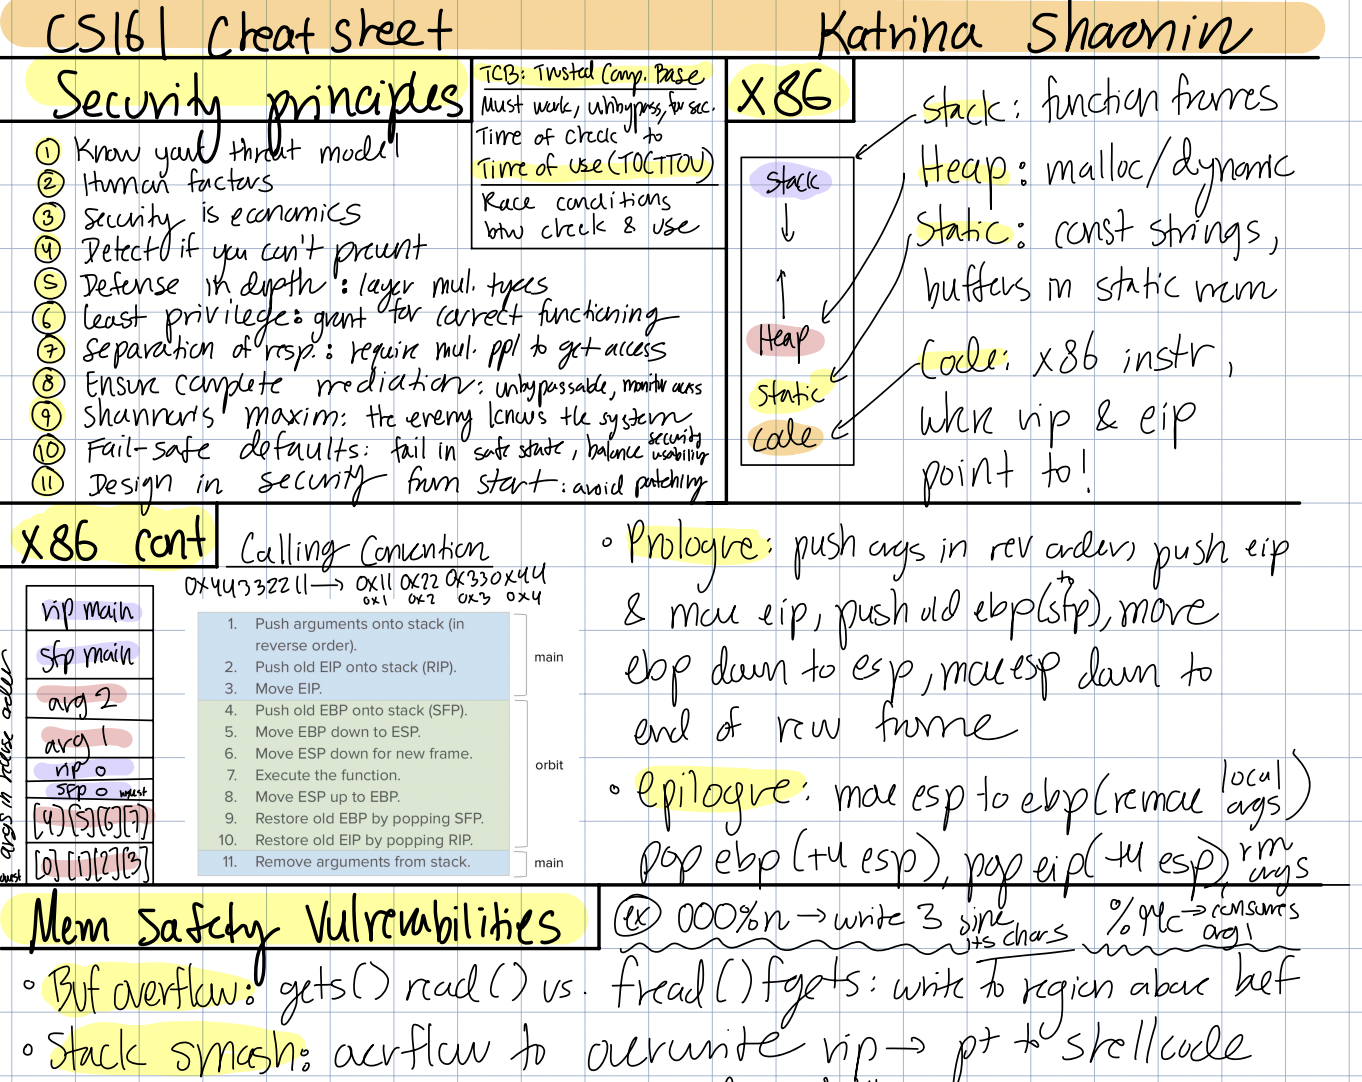 CS161 Cheat sheet
Katrina Sharonin
Security principles
① Know your threat model
② Human factors
③ Security is economics
④ Detect if you can't prevent
⑤ Defense in depth: layer mul. types
⑥ Least privilege: grant for correct functioning
⑦ Separation of resp.: require mul. ppl to get access
⑧ Ensure complete mediation: unbypassable, monitor access
⑨ Shannon's maxim: the enemy knows the system
⑩ Fail-safe defaults: fail in safe state, balance security usability
⑪ Design in security from start: avoid patching
TCB: Trusted Comp. Base
Must work, unbypass, for sec.
Time of check to
Time of Use (TOCTTOU)
Race conditions
btw check & use
X86
Stack
Heap
Static
Code
Stack: function frames
Heap: malloc/dynamic
Static: const strings,
buffers in static mem
Code: x86 instr,
where rip & eip
point to!
X86 cont
rip main
sfp main
arg 2
arg 1
rip o
sfp o
[4][5][6][7]
[0][1][2][3]
args in reverse order
Calling Convention
0x44332211 → 0x11 0x22 0x33 0x44
0x1 0x2 0x3 0x4
1. Push arguments onto stack (in
reverse order).
2. Push old EIP onto stack (RIP).
3. Move EIP.
main
4. Push old EBP onto stack (SFP).
5. Move EBP down to ESP.
6. Move ESP down for new frame.
7. Execute the function.
8. Move ESP up to EBP.
9. Restore old EBP by popping SFP.
10. Restore old EIP by popping RIP.
orbit
11. Remove arguments from stack.
main
• Prologue: push args in rev order, push eip
& move eip, push old ebp (sfp), move
ebp down to esp, move esp down to
end of new frame
• epilogue: move esp to ebp (remove local args)
pop ebp (+4 esp), pop eip (+4 esp), rm args
Mem Safety Vulnerabilities
ex 000%n → write 3 since its chars
%94c → consumes arg1
• Buf overflow: gets() read() vs. fread() fgets: write to region above buf
• Stack smash: overflow to overwrite rip → pt to shellcode